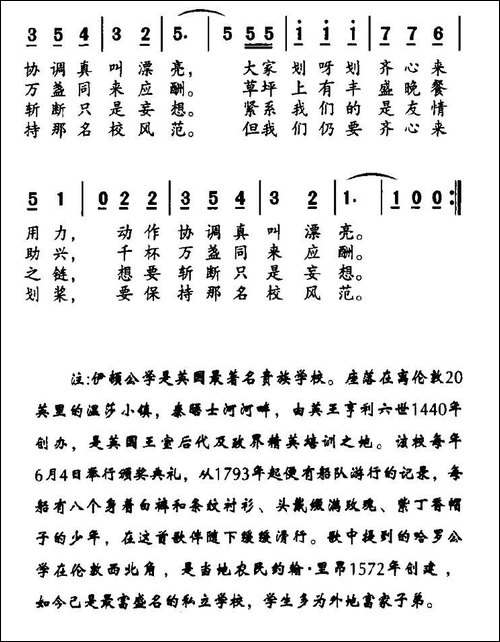 3 5 4 | 3 2 | 5. | 5 5 5 | i i i | 7 7 6 |
协调真叫漂亮， 大家划呀划齐心来
万盏同来应酬。 草坪上有丰盛晚餐
斩断只是妄想。 紧系我们的是友情
持那名校风范。 但我们仍要齐心来
5 1 | 0 2 2 | 3 5 4 | 3 2 | 1. | 1 0 0 :||
用力， 动作协调真叫漂亮。
助兴， 千杯万盏同来应酬。
之链， 想要斩断只是妄想。
划桨， 要保持那名校风范。
注:伊顿公学是英国最著名贵族学校。座落在离伦敦20
英里的温莎小镇，泰晤士河河畔，由英王亨利六世1440年
创办，是英国王室后代及政界精英培训之地。该校每年
6月4日举行颁奖典礼，从1793年起便有船队游行的记录，每
船有八个身着白裤和条纹衬衫、头戴缀满玫瑰、紫丁香帽
子的少年，在这首歌伴随下缓缓滑行。歌中提到的哈罗公
学在伦敦西北角，是当地农民约翰·里昂1572年创建，
如今已是最富盛名的私立学校，学生多为外地富家子弟。